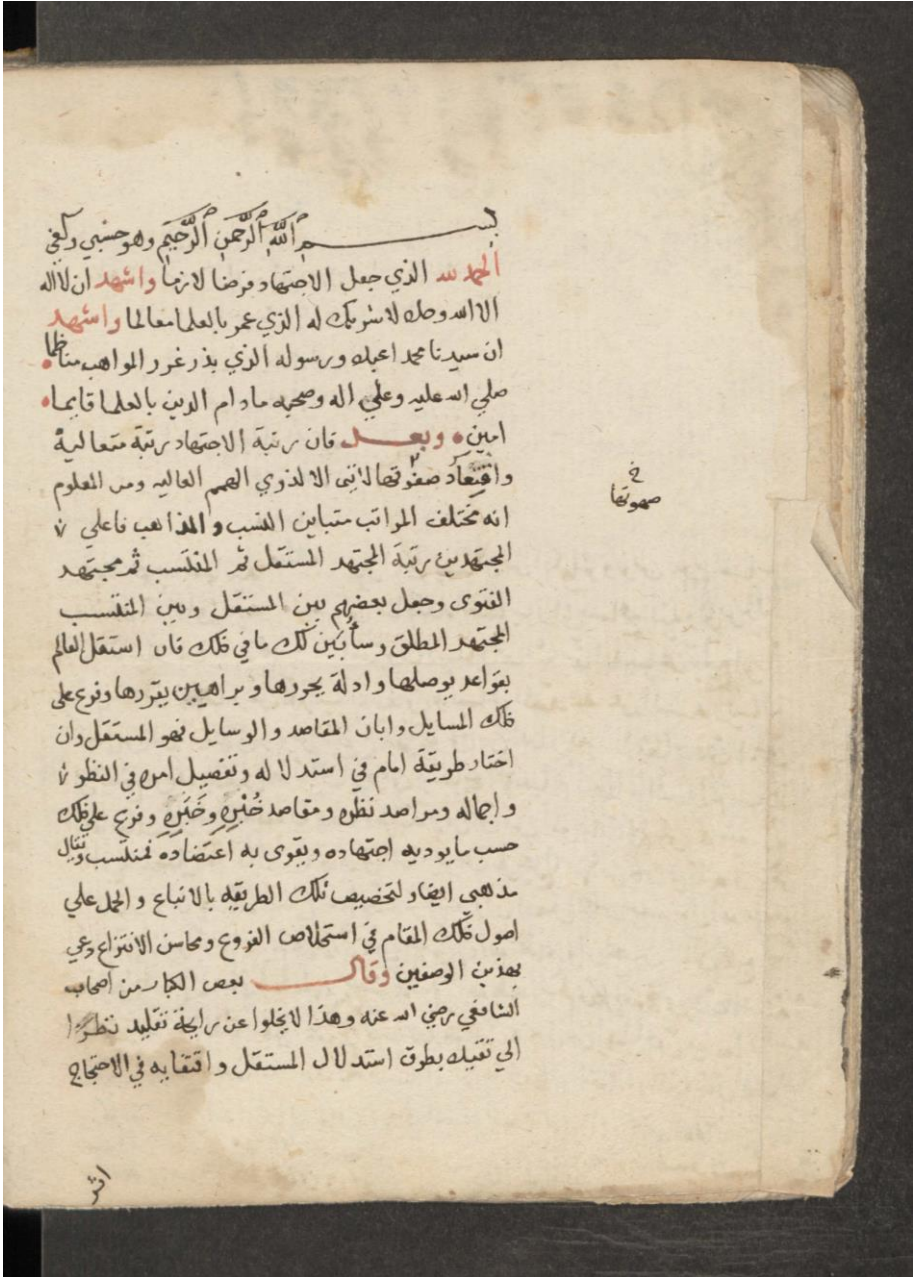 بسم الله الرحمن الرحيم وهو حسبي وكفى
الحمد لله الذي جعل الاجتهاد فرضا لازما واشهد ان لا اله
الا الله وحده لا شريك له الذي عمر بالعلما معالما واشهد
ان سيدنا محمدا عبده ورسوله الذي بذر غرر المواهب مناظما
صلي الله عليه وعلي اله وصحبه مادام الدين بالعلما قايما
امين وبعد فان رتبة الاجتهاد رتبة متعالية
واقتعاد صفوتها لا تنى الا لذوي الهمم العاليه ومن المعلوم
خ
صهوتها
انه مختلف المراتب متباين النسب والمذاهب فاعلي
المجتهدين رتبة المجتهد المستقل ثم المنتسب ثم مجتهد
الفتوى وجعل بعضهم بين المستقل وبين المنتسب
المجتهد المطلق وسأبين لك ما في ذلك فان استقل العالم
بقواعد يوصلها وادلة يحررها وبراهين يقررها وفرع على
ذلك المسايل وابان المقاصد والوسايل فهو المستقل وان
اختار طريقة امام في استدلاله وتفصيل امره في النظر
و اجماله ومراصد نظره ومقاصد خُبْرِهِ وخَبَرِهِ وفرع علي ذلك
حسب ما يوديه اجتهاده ويقوى به اعتضاده فمنتسب ويقال
مذهبي ايضا لتخصيص تلك الطريقه بالاتباع والحمل علي
اصول ذلك المقام في استخلاص الفروع ومحاسن الانتزاع دعي
بهذين الوصفين وقال بعض الكبار من اصحاب
الشافعي رضي الله عنه وهذا لا يخلوا عن رايحة تقليد نظرا
الي تقيده بطرق استدلال المستقل واقتفايه في الاحتجاج
اثر